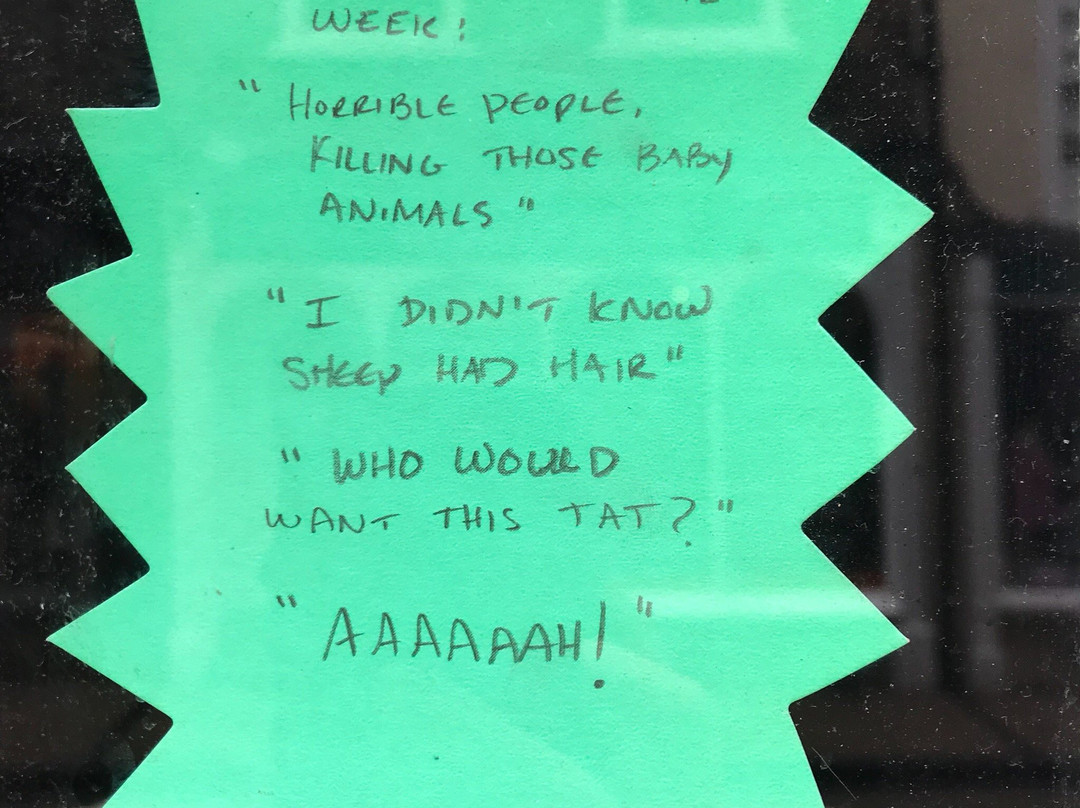 WEEK:
" HORRIBLE PEOPLE,
KILLING THOSE BABY
ANIMALS "
" I DIDN'T KNOW
SHEEP HAD HAIR "
" WHO WOULD
WANT THIS TAT? "
" AAAAAAH! "